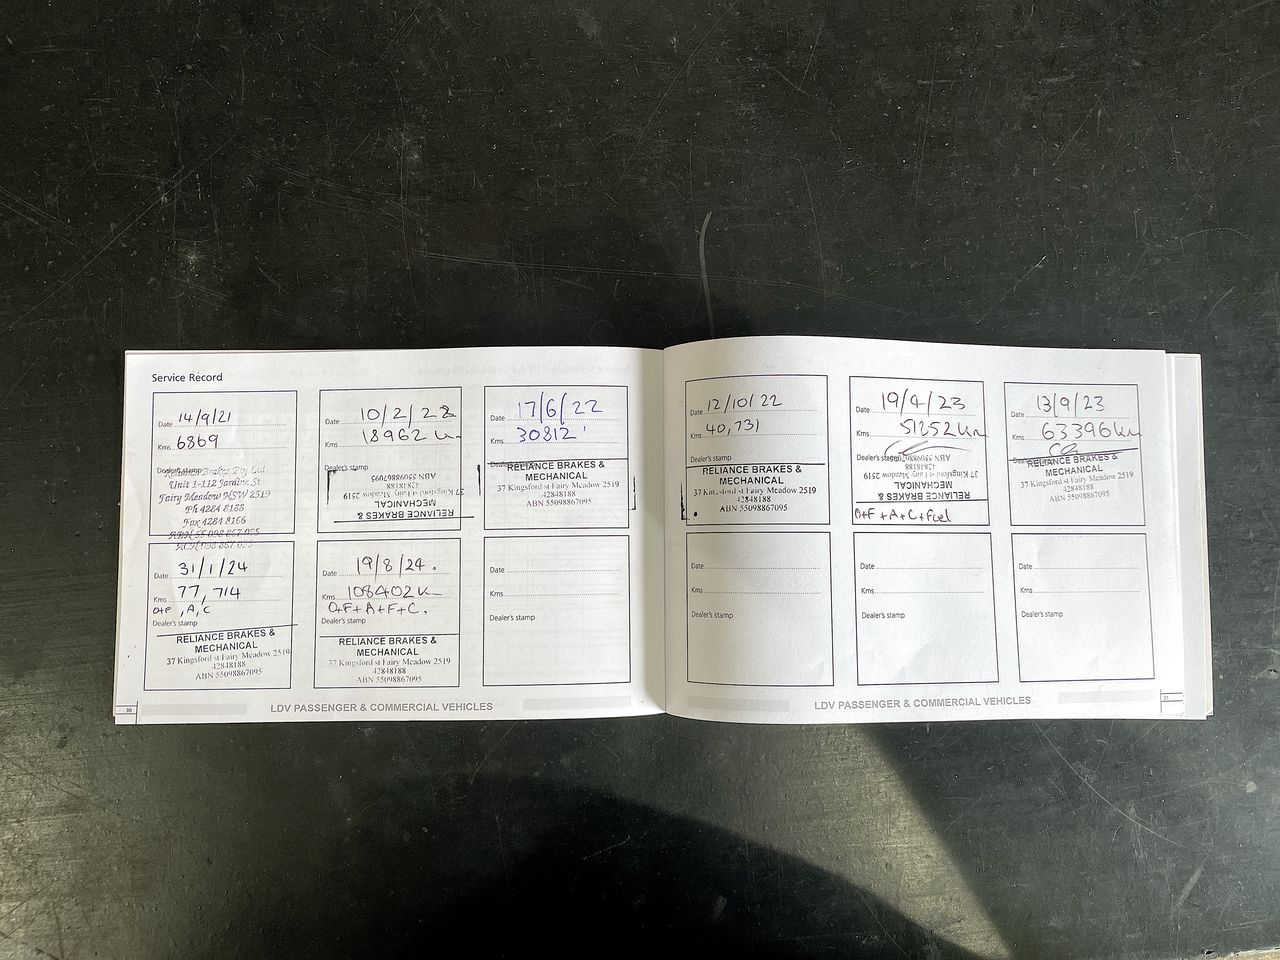 Service Record
Date 14/9/21
Kms 6869
Dealer's stamp
Reliance Brakes Pty Ltd
Unit 1-112 Jardine St
Fairy Meadow NSW 2519
Ph 4284 8188
Fax 4284 8166
ABN 55 098 867 095
ACN 098 867 095
Date 10/2/22
Kms 18962 km
Dealer's stamp
RELIANCE BRAKES &
MECHANICAL
37 Kingsford st Fairy Meadow 2519
42848188
ABN 55098867095
Date 17/6/22
Kms 30812
Dealer's stamp
RELIANCE BRAKES &
MECHANICAL
37 Kingsford st Fairy Meadow 2519
42848188
ABN 55098867095
Date 31/1/24
Kms 77,714
O+F, A, C
Dealer's stamp
RELIANCE BRAKES &
MECHANICAL
37 Kingsford st Fairy Meadow 2519
42848188
ABN 55098867095
Date 19/8/24.
Kms 108402 km
O+F+A+F+C.
Dealer's stamp
RELIANCE BRAKES &
MECHANICAL
37 Kingsford st Fairy Meadow 2519
42848188
ABN 55098867095
Date
Kms
Dealer's stamp
30
LDV PASSENGER & COMMERCIAL VEHICLES
Date 12/10/22
Kms 40,731
Dealer's stamp
RELIANCE BRAKES &
MECHANICAL
37 Kingsford st Fairy Meadow 2519
42848188
ABN 55098867095
Date 19/4/23
Kms 51252 km
Dealer's stamp
RELIANCE BRAKES &
MECHANICAL
37 Kingsford st Fairy Meadow 2519
42848188
ABN 55098867095
O+F+A+C+Fuel
Date 13/9/23
Kms 63396 km
Dealer's stamp
RELIANCE BRAKES &
MECHANICAL
37 Kingsford st Fairy Meadow 2519
42848188
ABN 55098867095
Date
Kms
Dealer's stamp
Date
Kms
Dealer's stamp
Date
Kms
Dealer's stamp
LDV PASSENGER & COMMERCIAL VEHICLES
31